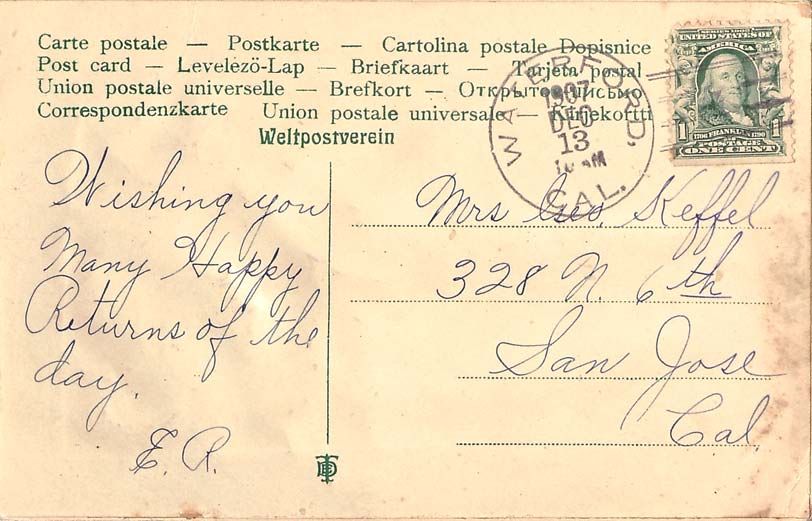 Carte postale — Postkarte — Cartolina postale Dopisnice
Post card — Levelezö-Lap — Briefkaart — Tarjeta postal
Union postale universelle — Brefkort — Открытое письмо
Correspondenzkarte Union postale universale — Kirjekortti
Weltpostverein
WATERFORD,
1907
DEC
13
10 AM
CAL.
SERIES 1902
UNITED STATES OF
AMERICA
1706 FRANKLIN 1790
1 POSTAGE 1
ONE CENT
Wishing you
Many Happy
Returns of the
day.
E. R.
Mrs Geo. Keffel
328 N. 6th
San Jose
Cal.